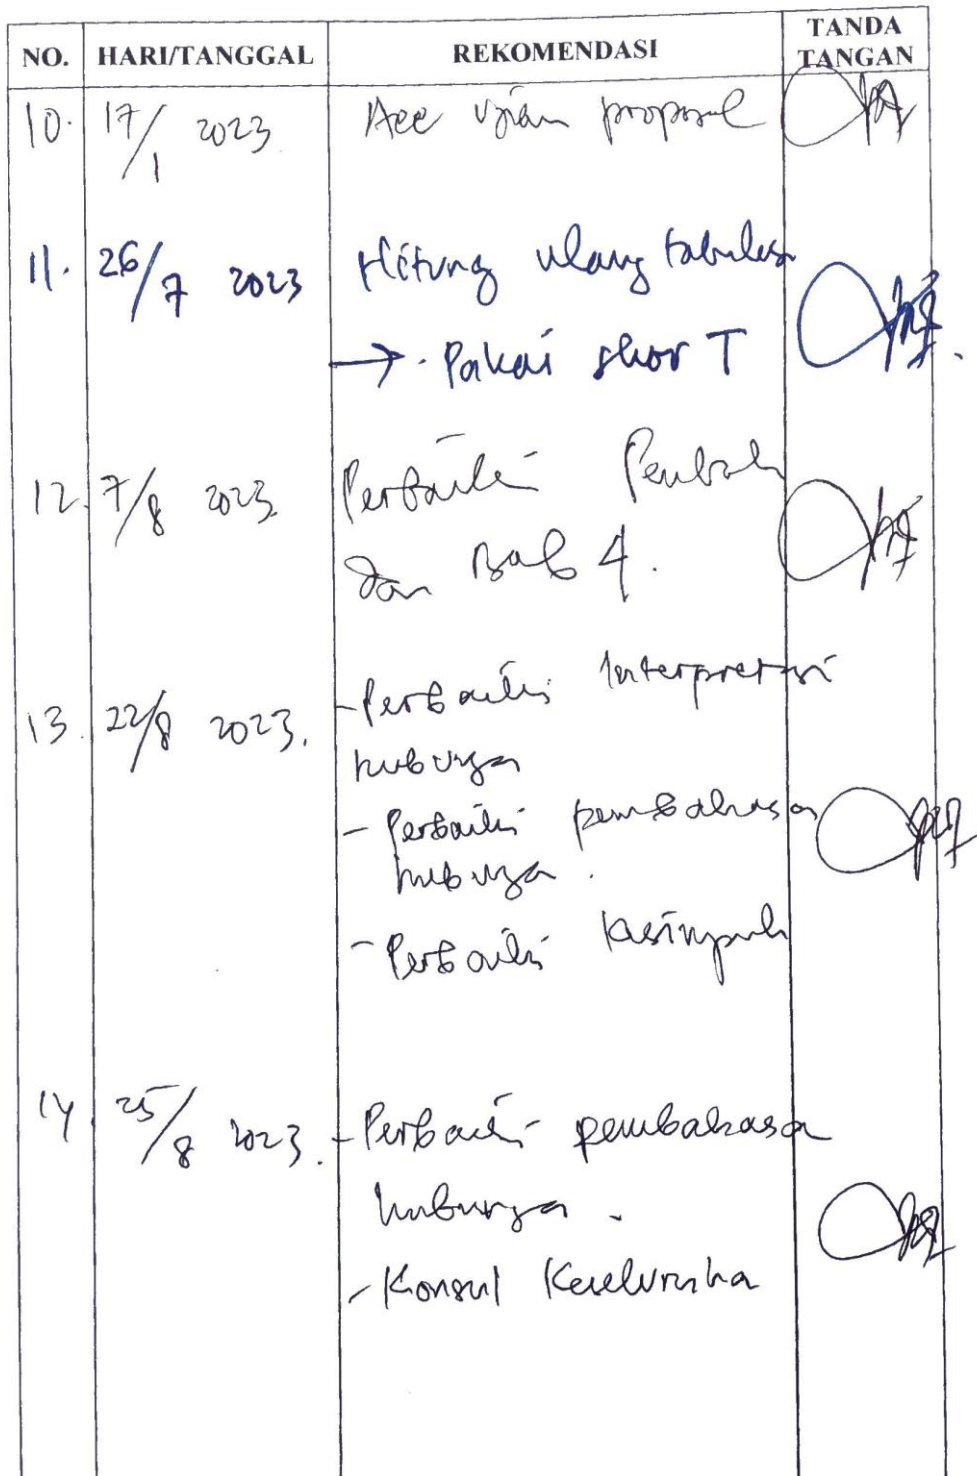 NO. HARI/TANGGAL REKOMENDASI TANDA TANGAN
10. 17/1 2023 Acc ujian proposal
11. 26/7 2023 Hitung ulang tabulasi
→ . Pakai skor T
12. 7/8 2023. Perbaiki Pembah
dan Bab 4.
13. 22/8 2023. - Perbaiki Interpretasi
hubunga
- Perbaiki pembahasan
hubunga.
- Perbaiki Kesimpula
14. 25/8 2023. - Perbaiki pembahasan
hubunga.
- Konsul Keseluruha